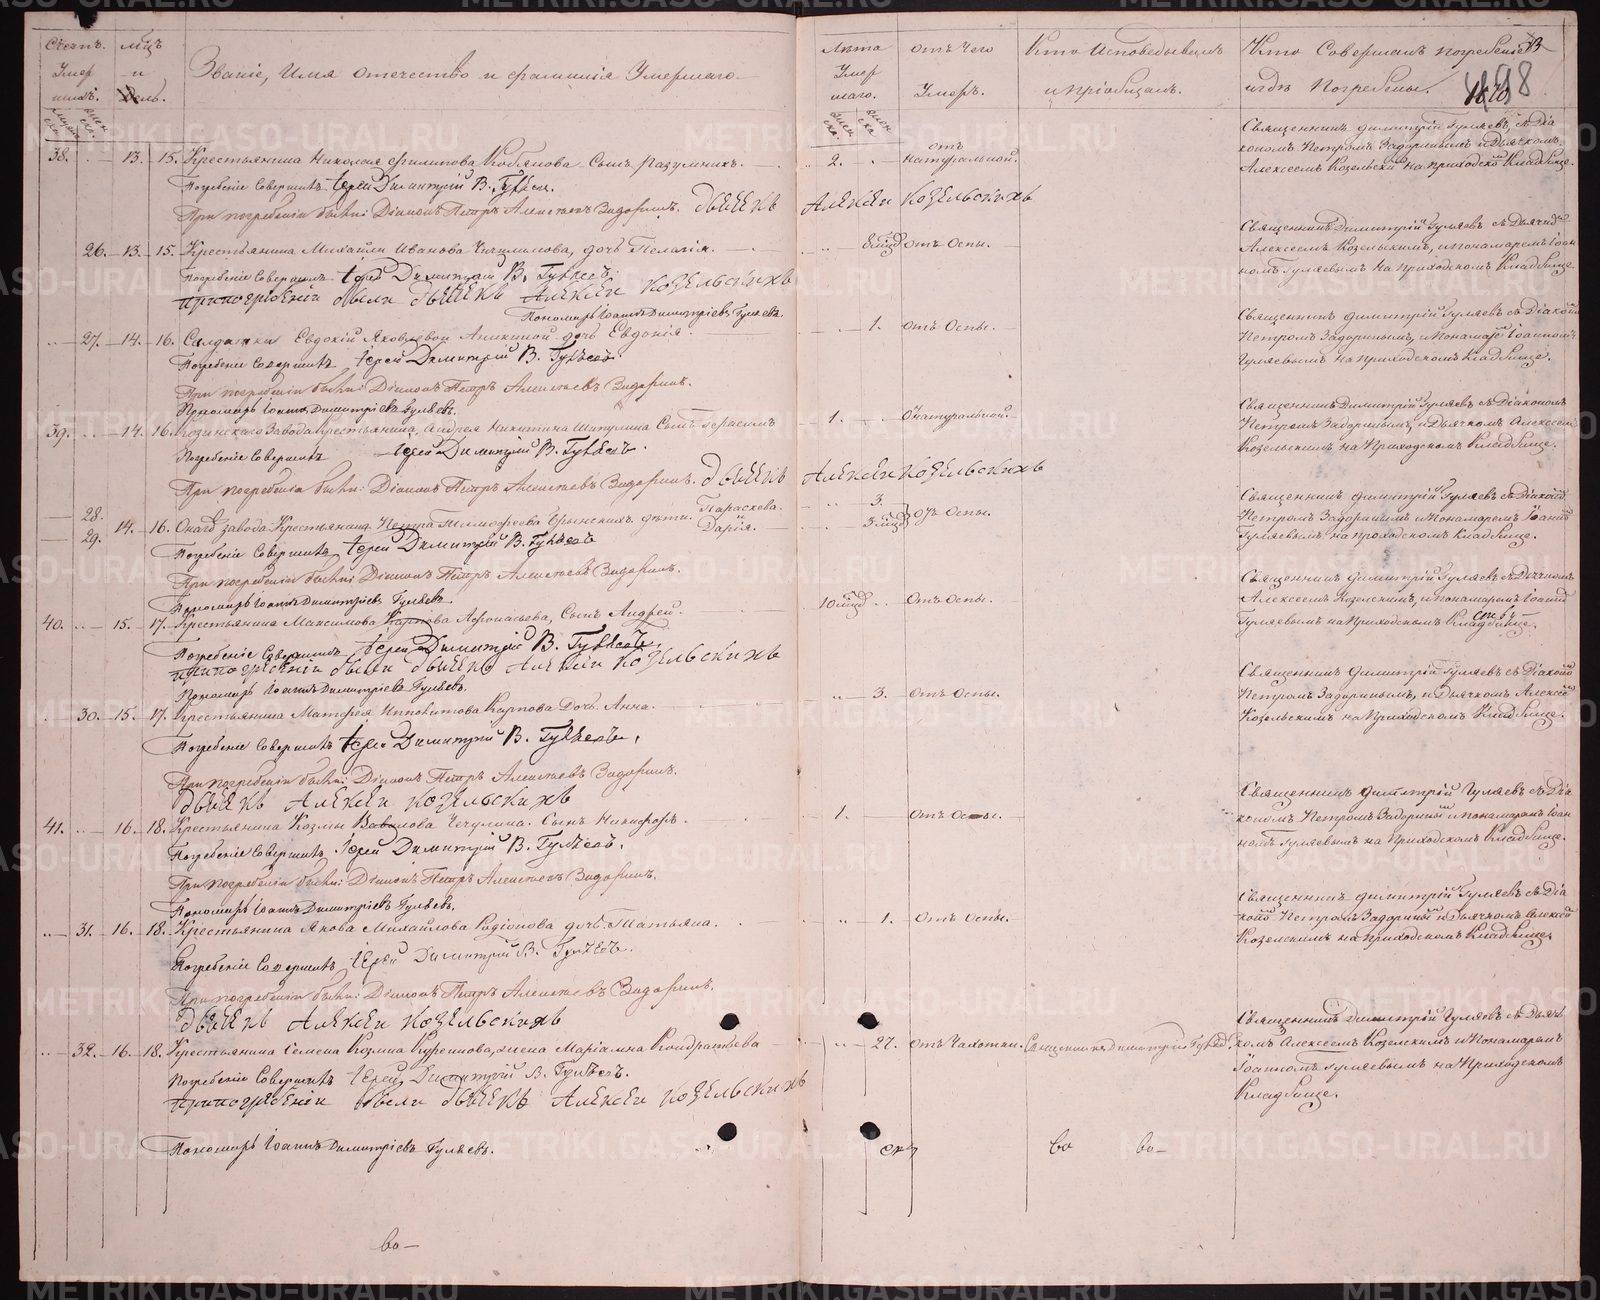 Счетъ Умершихъ. Мцъ и день. Званіе, Имя отечество и фамилія Умершаго.
мужеска женска
Лѣта Умершаго. отъ чего Умеръ. Кто Исповедывалъ и пріобщалъ. Кто Совершалъ погребеніе и гдѣ Погребены.
38. 13. 15. Крестьянина Николая Филипова Сынъ Разумникъ. 2. отъ натуральной.
Священникъ Димитрій Гуляевъ, съ Діакономъ Петромъ Задоринымъ и Дьячкомъ Алексеемъ Козельски на приходскомъ Кладбище.
Погребеніе Совершилъ Іерей Димитрій В. Гуляевъ.
При погребеніи были: Діаконъ Петръ Алексѣевъ Задоринъ. дьячекъ Алексеи Козельскихъ
26. 13. 15. Крестьянина Михайла Иванова дочь Пелагія. отъ Оспы.
Священникъ Димитрій Гуляевъ съ Дьячкомъ Алексеемъ Козельскимъ, и пономаремъ Іоанномъ Гуляевымъ на Приходскомъ Кладбище.
Погребеніе Совершилъ Іерей Димитрій В. Гуляевъ.
припогребеніи были дьячекъ Алексеи Козельскихъ
Пономарь Іоаннъ Димитріевъ Гуляевъ.
27. 14. 16. Салдатки Евдокіи Яковлевой Аникиной дочь Евдокія. 1. отъ Оспы.
Священникъ Димитрій Гуляевъ съ Діакономъ Петромъ Задоринымъ, и Пономаремъ Іоанномъ Гуляевымъ на приходскомъ Кладбище.
Погребеніе Совершилъ Іерей Димитрій В. Гуляевъ.
При погребеніи были: Діаконъ Петръ Алексѣевъ Задоринъ.
Пономарь Іоаннъ Димитріевъ Гуляевъ.
39. 14. 16. завода крестьянина Андрея Никитина Сынъ Герасимъ 1. натуральной.
Священникъ Димитрій Гуляевъ съ Діакономъ Петромъ Задоринымъ, и Дьячкомъ Алексеемъ Козельскимъ на Приходскомъ Кладбище.
Погребеніе Совершилъ Іерей Димитрій В. Гуляевъ.
При погребеніи были: Діаконъ Петръ Алексѣевъ Задоринъ. дьячекъ Алексеи Козельскихъ
28. 29. 14. 16. завода Крестьянина Петра Тимофеева дѣти. Параскева. Дарія. 3. отъ Оспы.
Священникъ Димитрій Гуляевъ съ Діакономъ Петромъ Задоринымъ и Пономаремъ Іоанномъ Гуляевымъ на приходскомъ Кладбище.
Погребеніе Совершилъ Іерей Димитрій В. Гуляевъ
При погребеніи были: Діаконъ Петръ Алексѣевъ Задоринъ.
Пономарь Іоаннъ Димитріевъ Гуляевъ
40. 15. 17. Крестьянина Максимова Карпова Афонасьева, Сынъ Андрей. 10 мцъ отъ Оспы.
Священникъ Димитрій Гуляевъ съ Дьячкомъ Алексеемъ Козельскимъ, и пономаремъ Іоанномъ Гуляевымъ на Приходскомъ Кладбище.
Погребеніе Совершилъ Іерей Димитрій В. Гуляевъ
припогребеніи были дьячекъ Алексеи Козельскихъ
Пономарь Іоаннъ Димитріевъ Гуляевъ.
30. 15. 17. Крестьянина Матфея Ипполитова Карпова Дочь Анна. 3. отъ Оспы.
Священникъ Димитрій Гуляевъ съ Діакономъ Петромъ Задоринымъ, и Дьячкомъ Алексеемъ Козельскимъ на Приходскомъ Кладбище.
Погребеніе Совершилъ Іерей Димитрій В. Гуляевъ.
При погребеніи были: Діаконъ Петръ Алексѣевъ Задоринъ.
дьячекъ Алексеи Козельскихъ
41. 16. 18. Крестьянина Козмы Вавилова Чечулина Сынъ Никифоръ. 1. отъ Оспы.
Священникъ Димитрій Гуляевъ съ Діакономъ Петромъ Задоринымъ и пономаремъ Іоанномъ Гуляевымъ на Приходскомъ Кладбище.
Погребеніе Совершилъ Іерей Димитрій В. Гуляевъ.
При погребеніи были: Діаконъ Петръ Алексѣевъ Задоринъ.
Пономарь Іоаннъ Димитріевъ Гуляевъ.
31. 16. 18. Крестьянина Якова Михайлова Родіонова дочь Татьяна. 1. отъ Оспы.
Священникъ Димитрій Гуляевъ съ Діакономъ Петромъ Задоринымъ и Дьячкомъ Алексеемъ Козельскимъ на приходскомъ Кладбище.
Погребеніе Совершилъ Іерей Димитрій В. Гуляевъ.
При погребеніи были: Діаконъ Петръ Алексѣевъ Задоринъ.
дьячекъ Алексеи Козельскихъ
32. 16. 18. Крестьянина Семена Козмина жена Маріамна Кондратьева 27. отъ Чахотки. Священникъ Димитрій Гуляевъ.
Священникъ Димитрій Гуляевъ съ Дьячкомъ Алексеемъ Козельскимъ и Пономаремъ Іоанномъ Гуляевымъ на Приходскомъ Кладбище.
Погребеніе Совершилъ Іерей Димитрій В. Гуляевъ.
припогребеніи были дьячекъ Алексеи Козельскихъ
Пономарь Іоаннъ Димитріевъ Гуляевъ.
METRIKI.GASO-URAL.RU